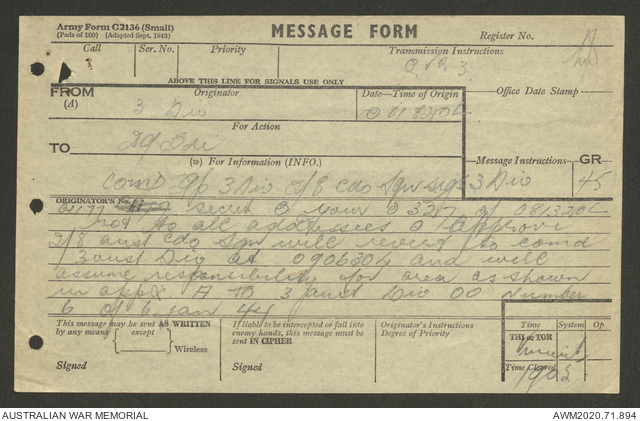 Army Form C2136 (Small)
(Pads of 100) (Adapted Sept. 1943)
MESSAGE FORM
Register No.
Call
Ser. No.
Priority
Transmission Instructions
ABOVE THIS LINE FOR SIGNALS USE ONLY
FROM
(A)
Originator
3 Div
Date—Time of Origin
Office Date Stamp
For Action
TO
29 Bde
(W) For Information (INFO.)
Message Instructions
GR
45
Comd 3 Div 2/8 Cdo Sqn Sigs 3 Div
ORIGINATOR'S No.
secret O your O 327 of 081320L
not to all addressees O
2/8 aust cdo Sqn will revert to comd
3 aust Div at 090630L and will
assume responsibility for area as shown
in appx. A to 3 aust Div OO number
6 of 6 Jan 44
This message may be sent AS WRITTEN
by any means
except
Wireless
Signed
If liable to be intercepted or fall into
enemy hands, this message must be
sent IN CIPHER
Signed
Originator's Instructions
Degree of Priority
Time
System
Op
THI or TOR
Time Cleared
AUSTRALIAN WAR MEMORIAL
AWM2020.71.894